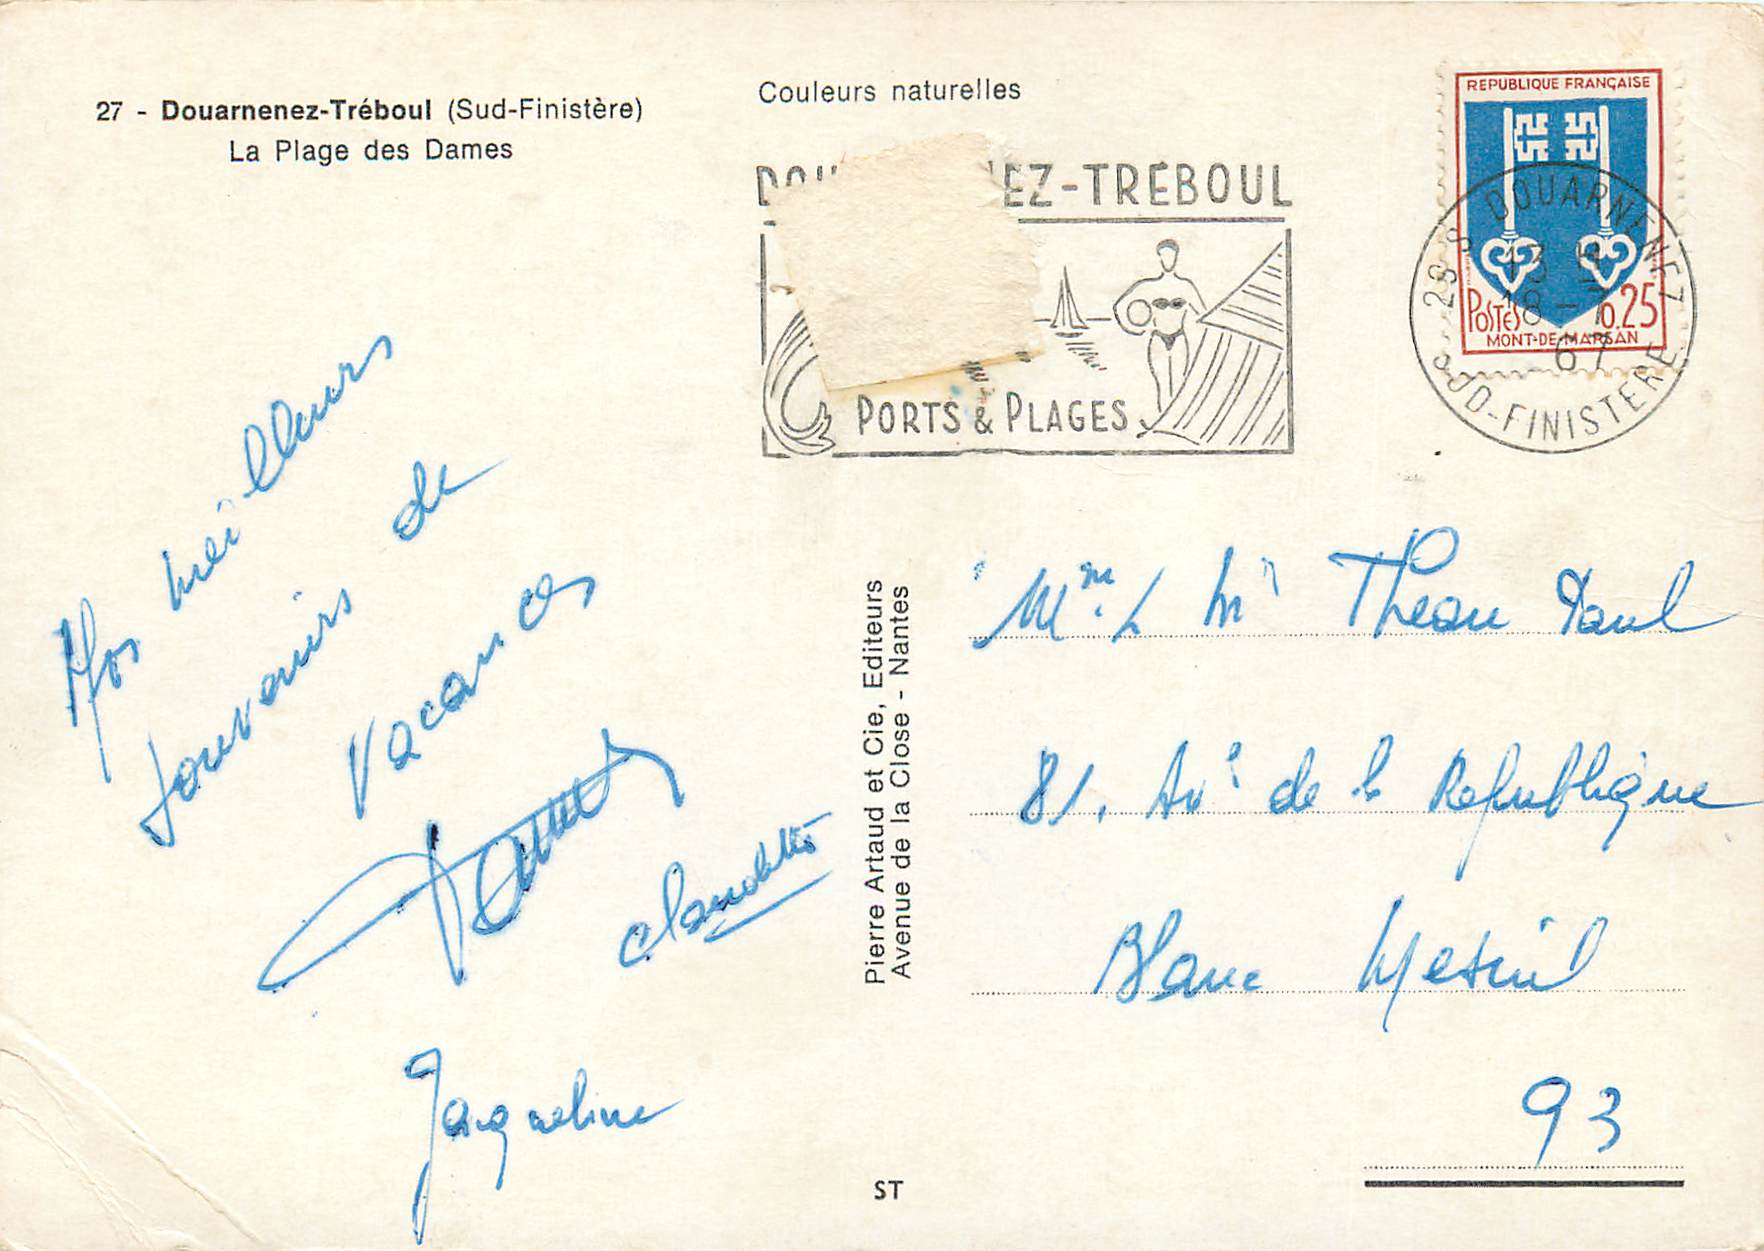 27 - Douarnenez-Tréboul (Sud-Finistère)
La Plage des Dames
Couleurs naturelles
EZ-TRÉBOUL
PORTS & PLAGES
REPUBLIQUE FRANÇAISE
POSTES 0,25
MONT-DE-MARSAN
DOUARNENEZ
18 - 7
67
SUD-FINISTERE
Nos meilleurs
souvenirs de
vacances
Claudette
Jacqueline
Pierre Artaud et Cie, Editeurs
Avenue de la Close - Nantes
ST
Mme & Mr Theau Paul
81, Ave de la Republique
Blanc Mesnil
93